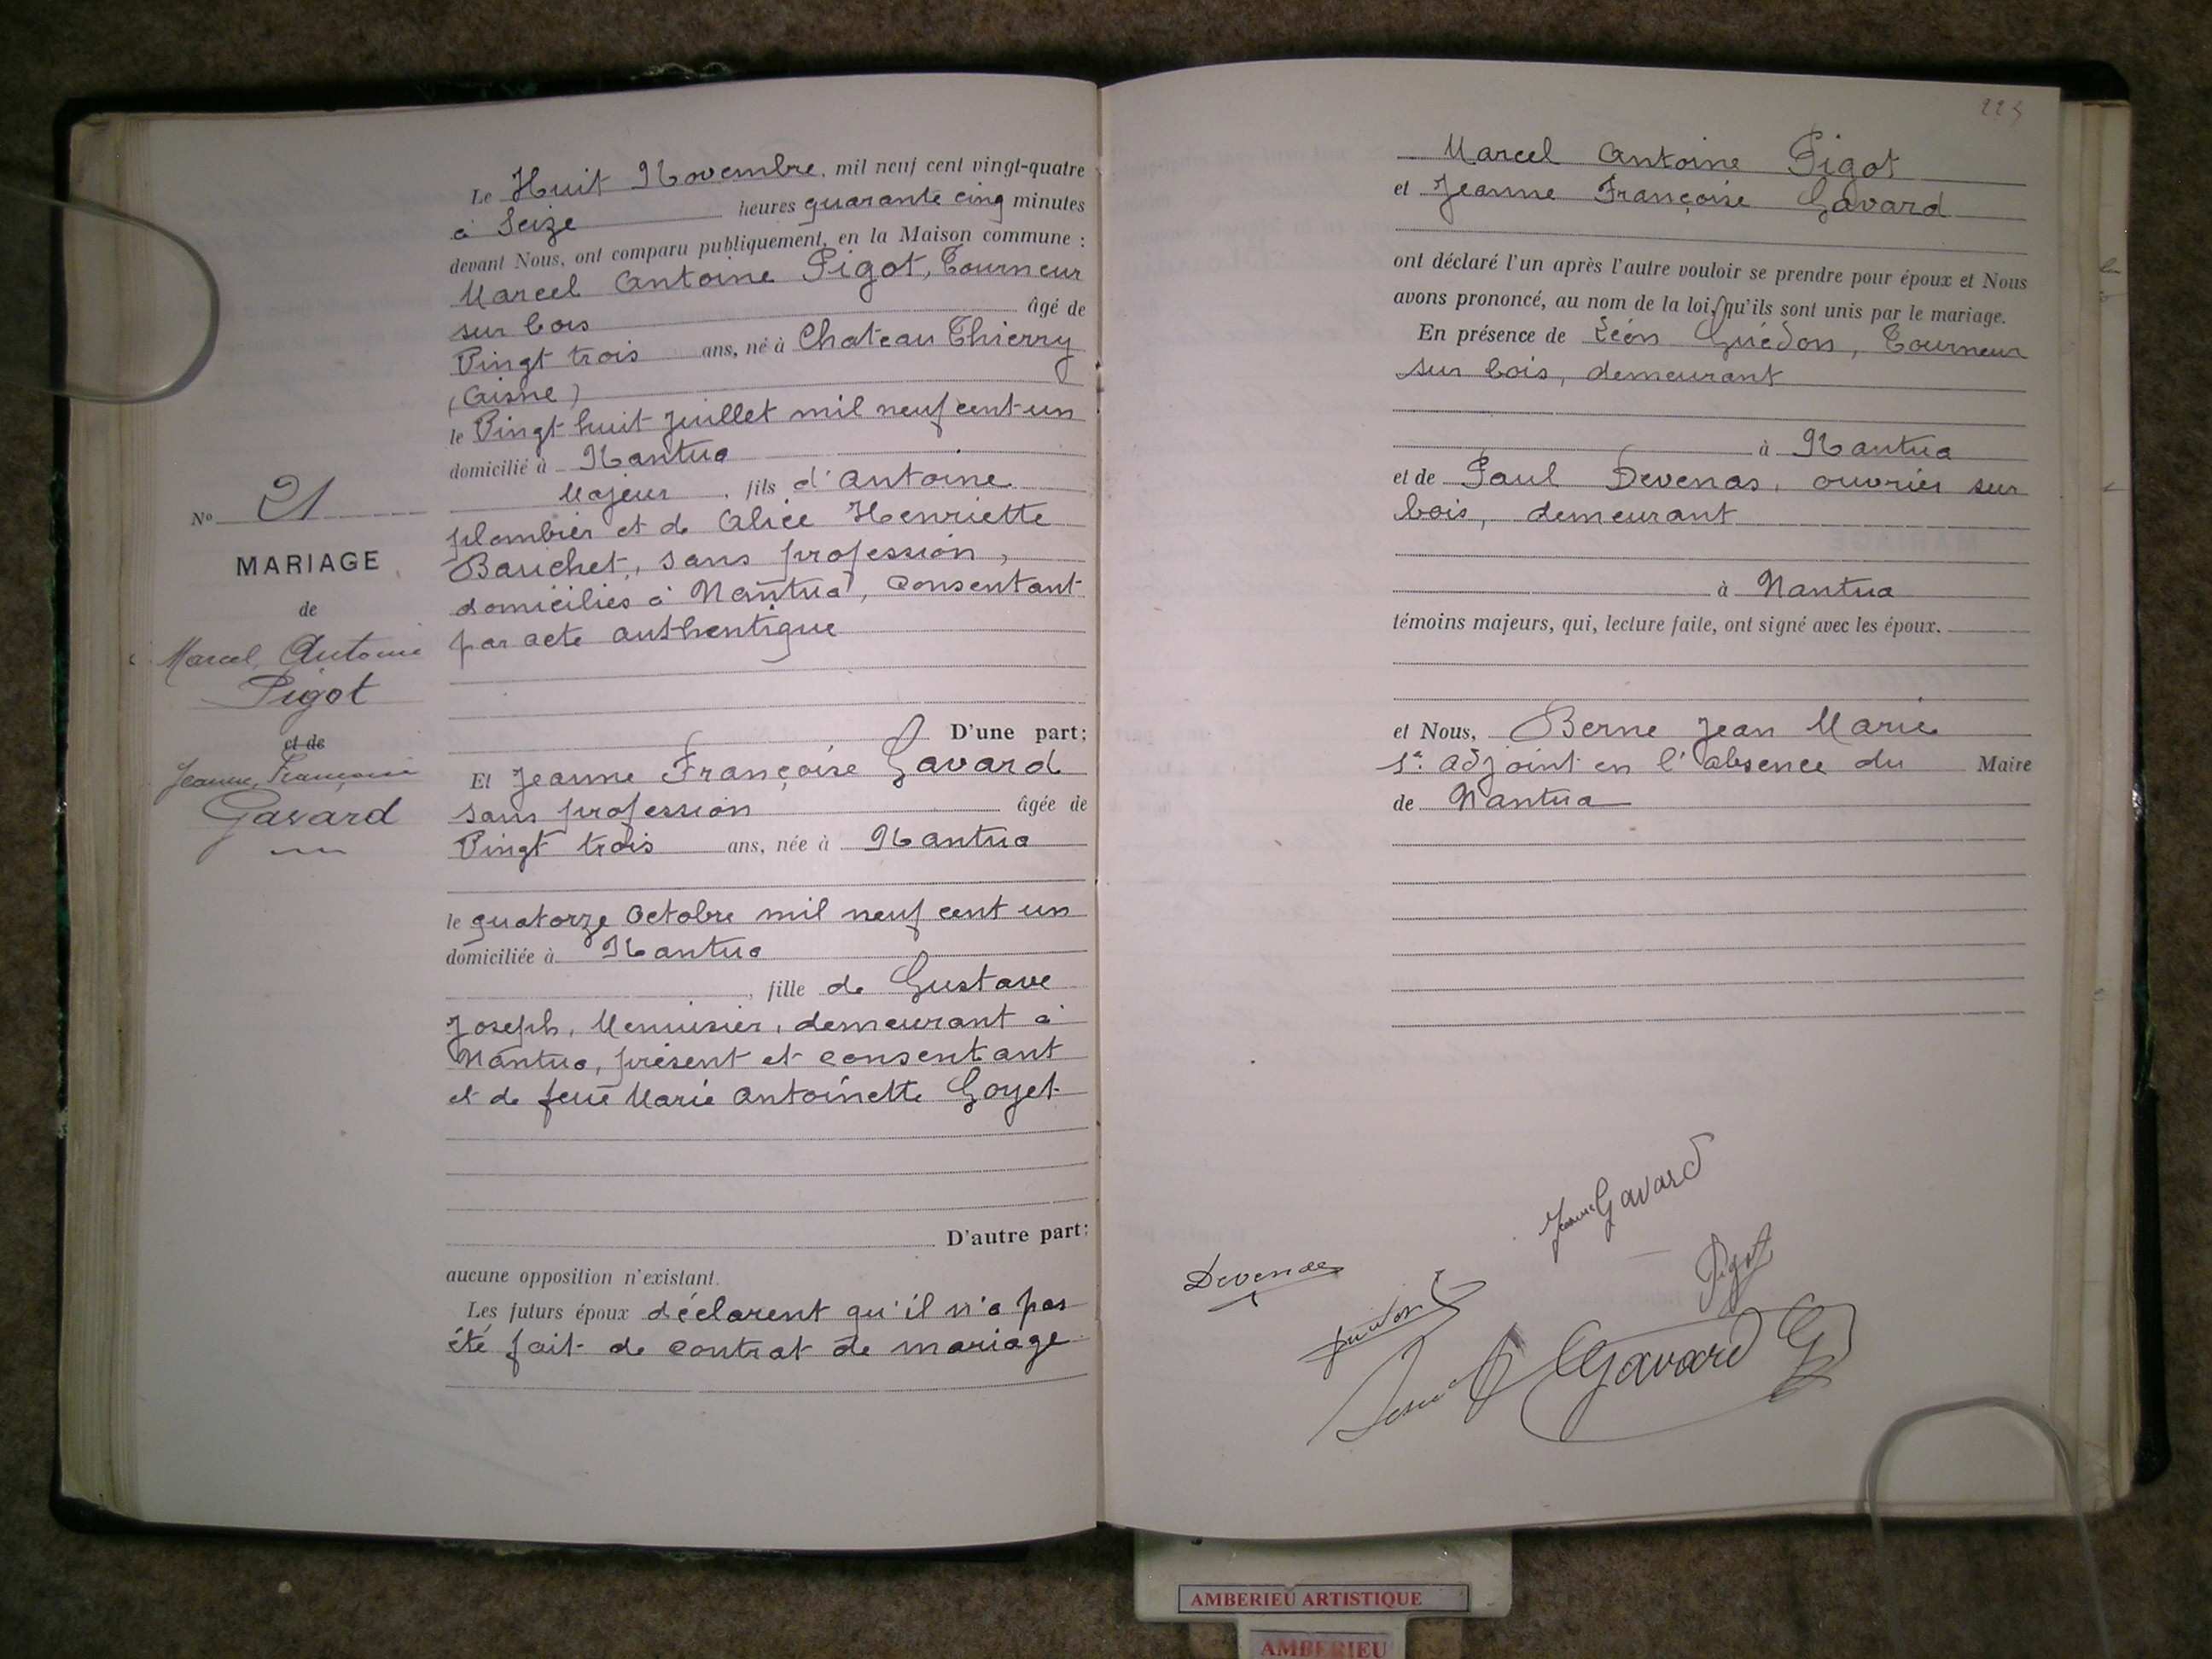 Le Huit Novembre, mil neuf cent vingt-quatre
à Seize heures quarante cinq minutes
devant Nous, ont comparu publiquement, en la Maison commune :
Marcel Antoine Pigot, Tourneur
sur bois âgé de
Vingt trois ans, né à Chateau Thierry
(Aisne)
le Vingt huit Juillet mil neuf cent un
domicilié à Nantua
Majeur, fils d'Antoine
plombier et de Alice Henriette
Bauchet, sans profession,
domiciliés à Nantua, consentant
par acte authentique
D'une part;
Et Jeanne Françoise Gavard
sans profession âgée de
Vingt trois ans, née à Nantua
le quatorze Octobre mil neuf cent un
domiciliée à Nantua
, fille de Gustave
Joseph, Menuisier, demeurant à
Nantua, présent et consentant
et de feue Marie Antoinette Goyet
D'autre part;
aucune opposition n'existant.
Les futurs époux déclarent qu'il n'a pas
été fait de contrat de mariage
No 21
MARIAGE
de
Marcel, Antoine
Pigot
et de
Jeanne, Françoise
Gavard
225
Marcel Antoine Pigot
et Jeanne Françoise Gavard
ont déclaré l'un après l'autre vouloir se prendre pour époux et Nous
avons prononcé, au nom de la loi, qu'ils sont unis par le mariage.
En présence de Léon Guédon, Tourneur
sur bois, demeurant
à Nantua
et de Paul Devenas, ouvrier sur
bois, demeurant
à Nantua
témoins majeurs, qui, lecture faite, ont signé avec les époux.
et Nous, Berne Jean Marie
1er adjoint en l'absence du Maire
de Nantua
Jeanne Gavard
Devenas
Pigot
Gavard G
AMBERIEU ARTISTIQUE
AMBERIEU